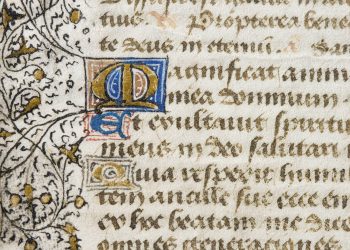 tius ℟ Propterea bene
te deus in eternū
Magnificat anima
mea dominum
Et exultauit spiritu
meus in deo salutari
Quia respexit humi
tem ancille sue ecce en
ex hoc beatam me dice
omnes generationes